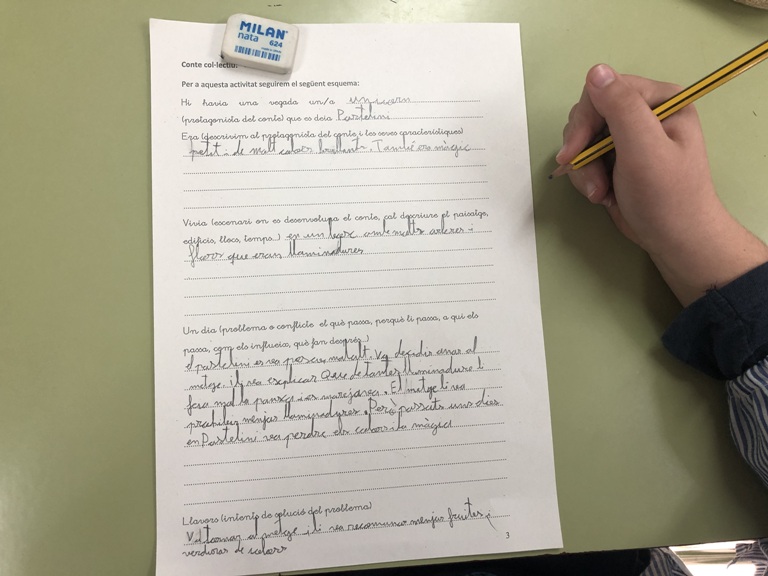 MILAN
nata
624
Conte col·lectiu:
Per a aquesta activitat seguirem el següent esquema:
Hi havia una vegada un/a unicorn
(protagonista del conte) que es deia Pastelini
Era (descrivim al protagonista del conte i les seves característiques)
petit i de molt colors brillants. També era màgic
Vivia (escenari on es desenvolupa el conte, cal descriure el paisatge,
edificis, llocs, temps...) en un bosc amb molts arbres i
flors que eran llaminadures
Un dia (problema o conflicte el què passa, perquè li passa, a qui els
passa, com els influeix, què fan després)
el pastelini es va posar malalt. Va decidir anar al
metge, i li va explicar Que de tantes lluminadure li
feia mal la panxa i es marejava. El metge li va
prohibir menjar llaminadures. Però passats uns dies
en Pastelini va perdre els colors i la màgia
Llavors (intento de solució del problema)
Va tornar al metge i li va recomanar menjar fruites i
verduras de colors
3